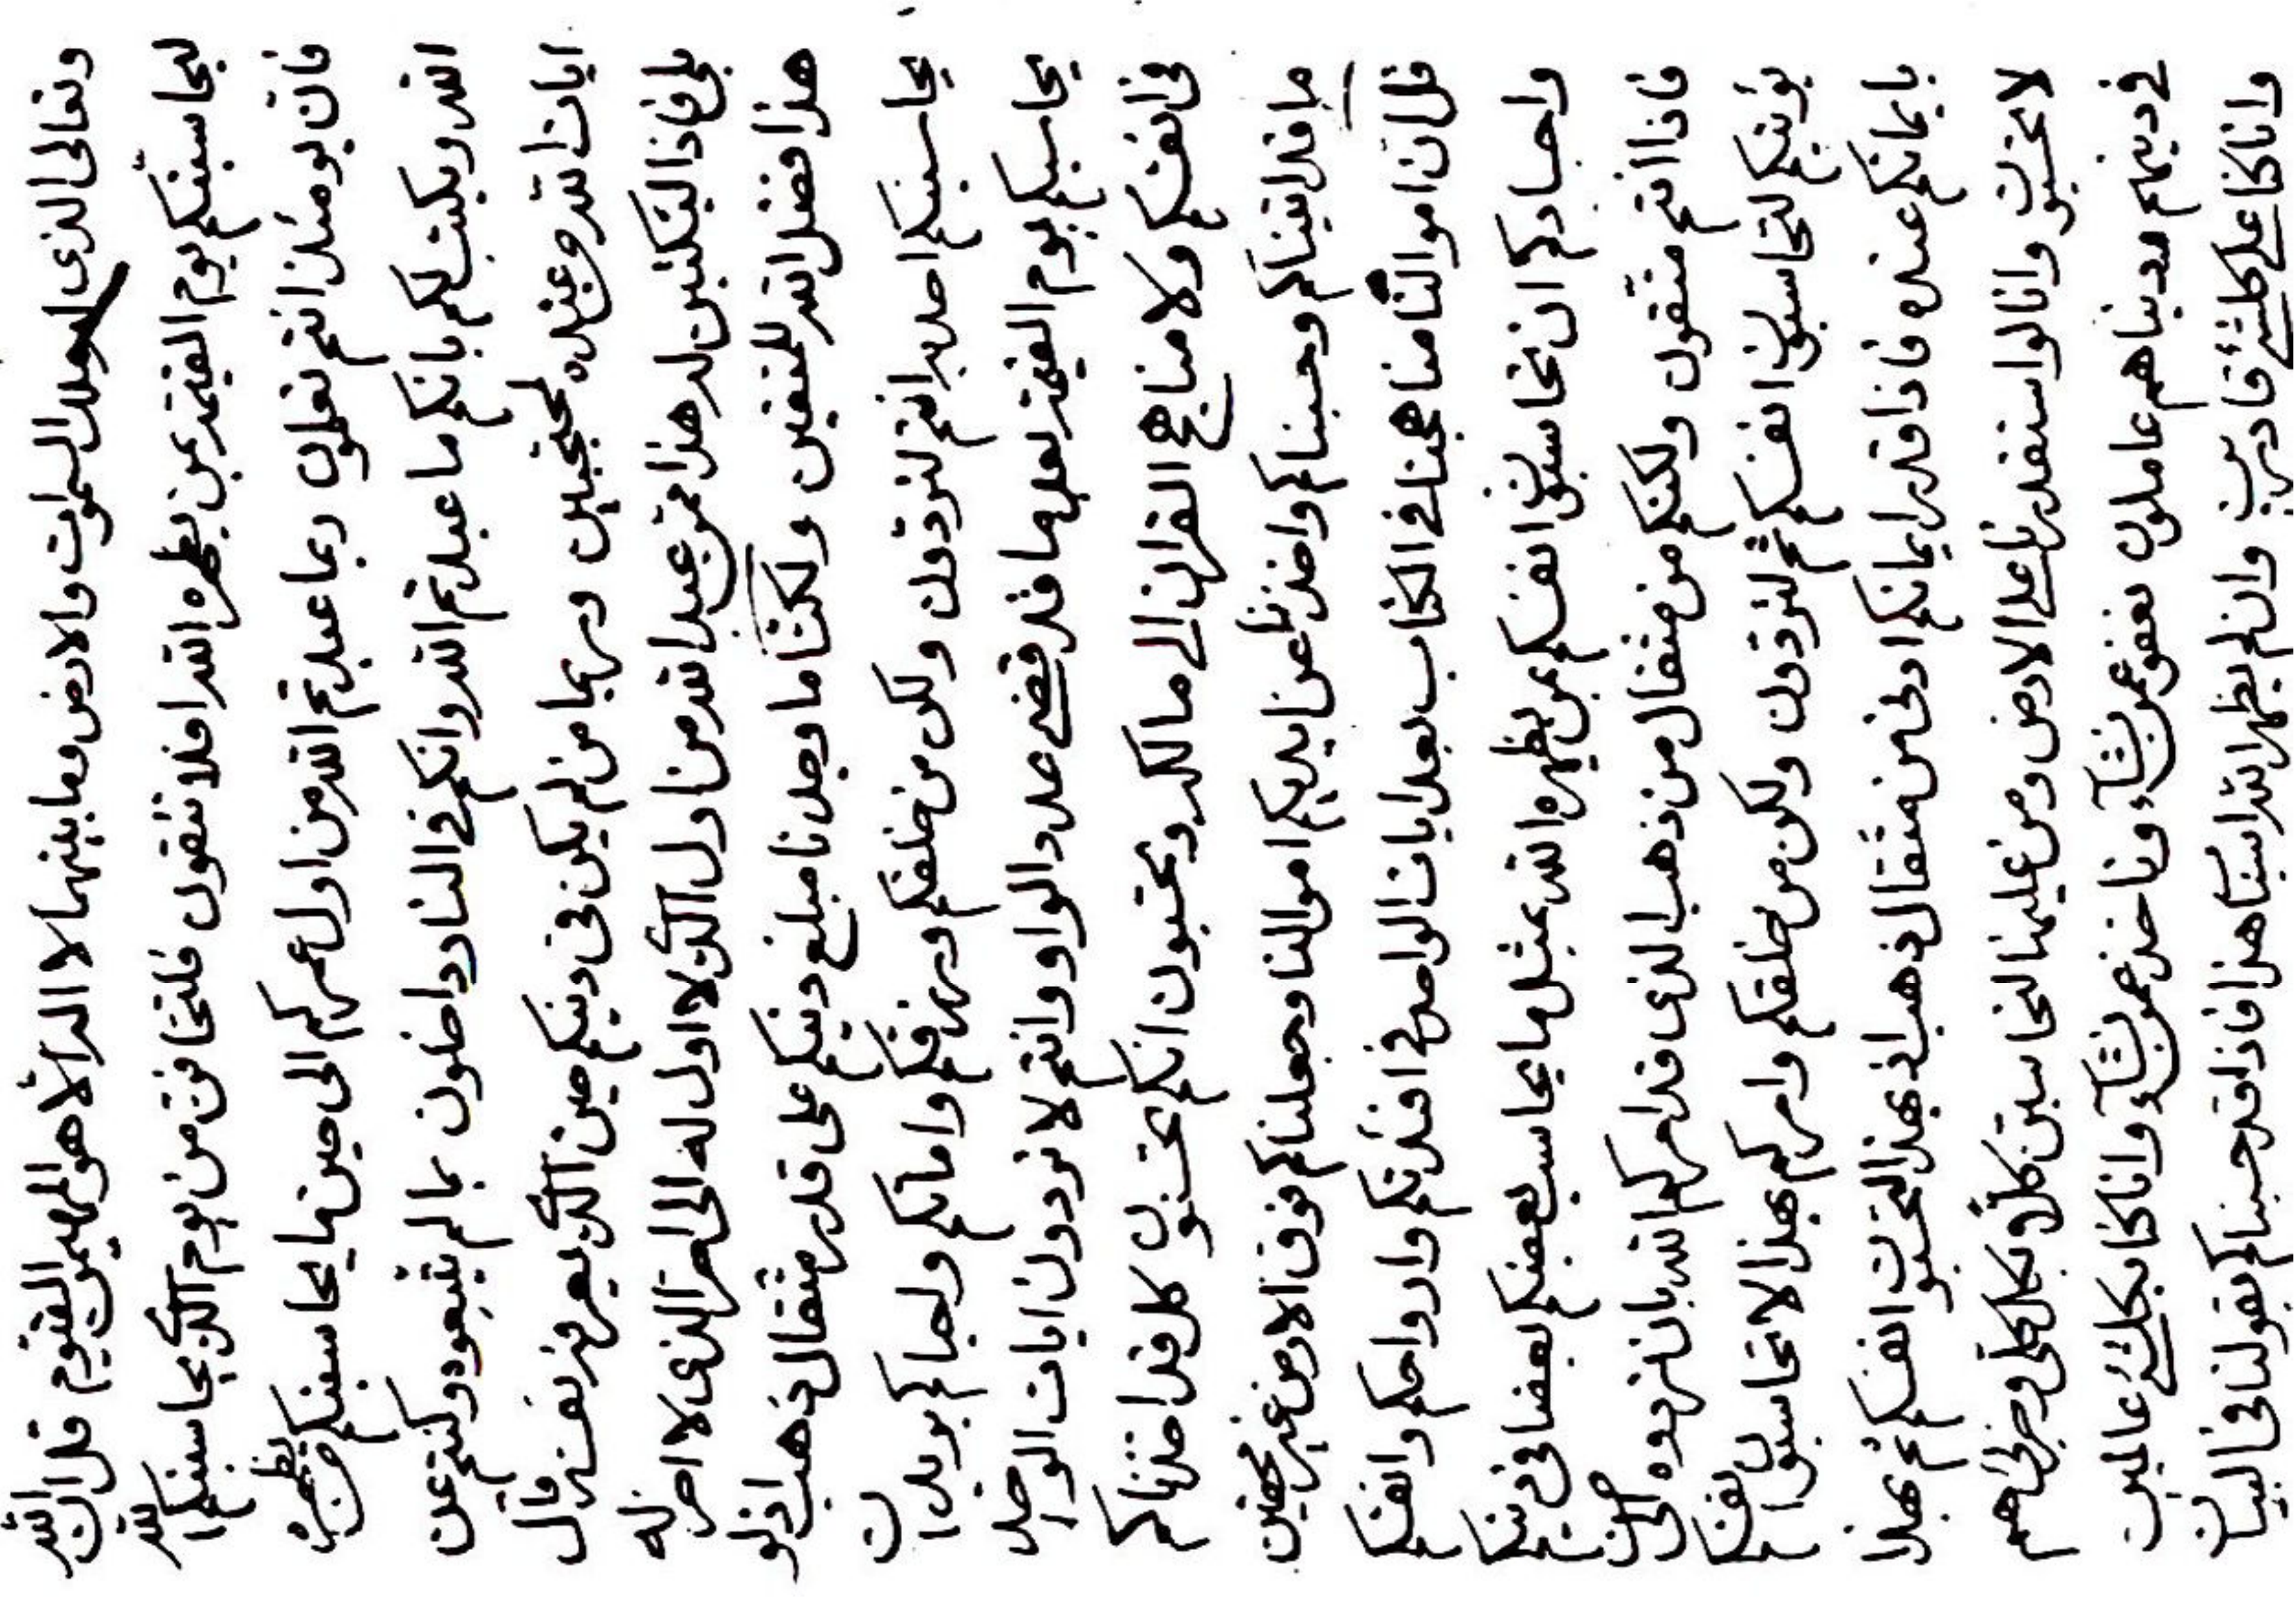 وتعالى الذى له ملك السموات والارض وما بينهما لا اله الا هو المهيمن القيوم قل ان الله
ليحاسبنكم يوم القيمة بمن يظهره الله افلا تتقون فلتخافن من يوم الكل يحاسبنكم الله
فان يومئذ انتم تعلمون وبما عبدتم الله من اول عمركم الى حين ما يحاسبنكم من يظهره
الله ويكتب لكم بانكم ما عبدتم الله وانكم فى النار داخلون بما لم يتبعوه وكنتم عن
ايات الله وعنده لمحتجبين وربما من لم يكن فى دينكم حين الكل يعرفن نفسه قال
بلى فاذا ليكتبن له هذا ممن عبد الله من اول الذى لا اول له الى اخر الذى لا اخر له
هذا فضل الله للمتقين ولكننا ما وجدنا مبلغ دينكم على قدر مثقال ذهب اذ لو
يحاسبنكم احد به انتم لتردون ولكن من خلقكم ورزقكم واماتكم واحياكم
يحاسبكم يوم القيمة بعلم ما قد قضى عدد الواو وانتم لا تردون ايات الواحد
فى انفسكم ولا مناهج القران الى مالكه وتحتسبون انكم محتسبون كل قد اخذناكم
ما قد اتيناكم وحسبناكم واخذنا عن ايديكم اموالنا وجعلناكم فوق الارض غير محصين
قل ان اموالنا مناهجنا فى الكتاب بعد ايات الواحد فى افئدتكم وارواحكم وانفسكم
واجسادكم ان تحاسبن انفسكم بمن يظهره الله بمثل ما يحاسب بعضكم بعضا فى دينكم
فاذا انتم متقون ولكنكم من مثقال من ذهب الذى قد امركم الله بان تردوه الى صاحبه
يؤتينكم لتحاسبن انفسكم ثم لتردون ولكن من خلقكم وامركم بهذا لا تحاسبون انفسكم
بايمانكم عنده فاذا قدر ايمانكم ادنى من مثقال ذهب اذ بهذا لتحاسبن انفسكم ثم بهذا
لا تحاسبون وانا لو استقدرنا على الارض ومن عليها لنحاسبن كلا بكل حتى نرى هم
فى دينهم مدينا هم عاملون نعفو عمن نشآء وناخذ عمن نشآء وانا كنا بكل شئ عالمين
وانا كنا على كل شئ قادرين وان لم يظهر الله اسبابنا هذا فاذا قد حسبناكم بقولنا فى البيان